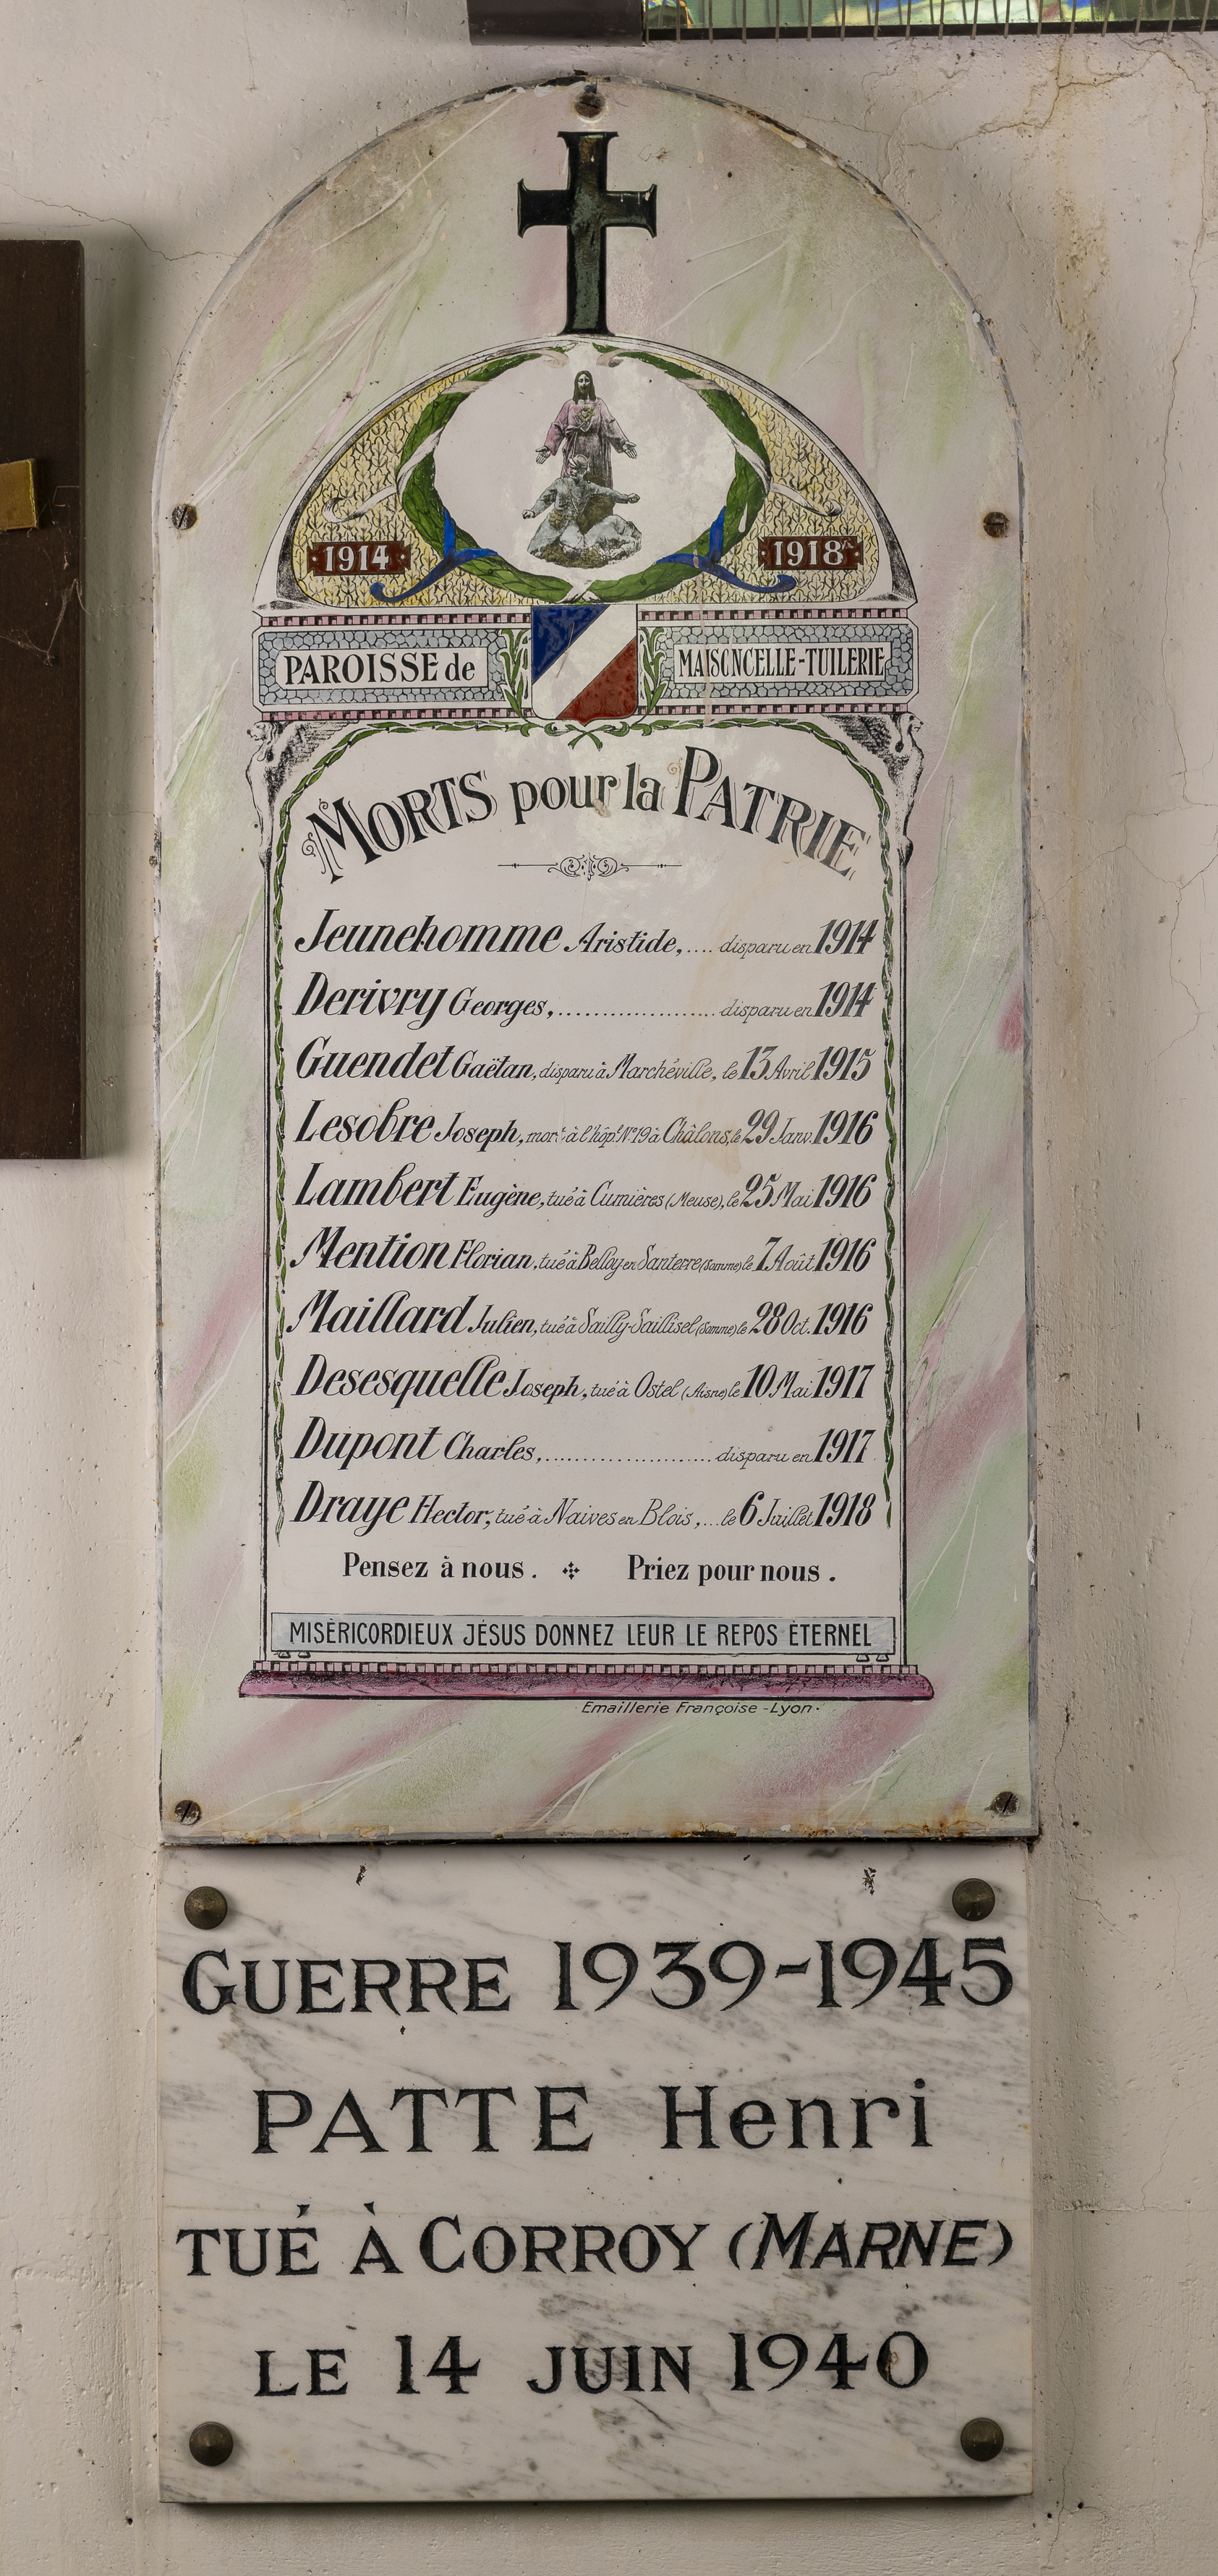 1914
1918
PAROISSE de
MAISONCELLE-TUILERIE
MORTS pour la PATRIE
Jeunehomme Aristide,.... disparu en 1914
Derivry Georges,...................... disparu en 1914
Guendet Gaëtan, disparu à Marchéville, le 13 Avril 1915
Lesobre Joseph, mort à l'hôp.l N°19 à Châlons, le 29 Janv. 1916
Lambert Eugène, tué à Cumières (Meuse), le 25 Mai 1916
Mention Florian, tué à Belloy en Santerre (Somme) le 7 Août 1916
Maillard Julien, tué à Sailly-Saillisel (Somme) le 28 Oct. 1916
Desesquelle Joseph, tué à Ostel (Aisne) le 10 Mai 1917
Dupont Charles,....................... disparu en 1917
Draye Hector, tué à Naives en Blois,... le 6 Juillet 1918
Pensez à nous. Priez pour nous.
MISÉRICORDIEUX JÉSUS DONNEZ LEUR LE REPOS ÉTERNEL
Emaillerie Françoise - Lyon.
GUERRE 1939-1945
PATTE Henri
TUÉ À CORROY (MARNE)
LE 14 JUIN 1940